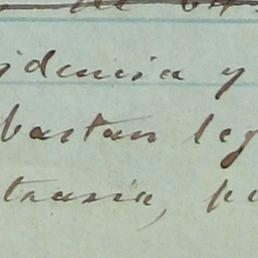 idencia y
bastan leg
traria, pe